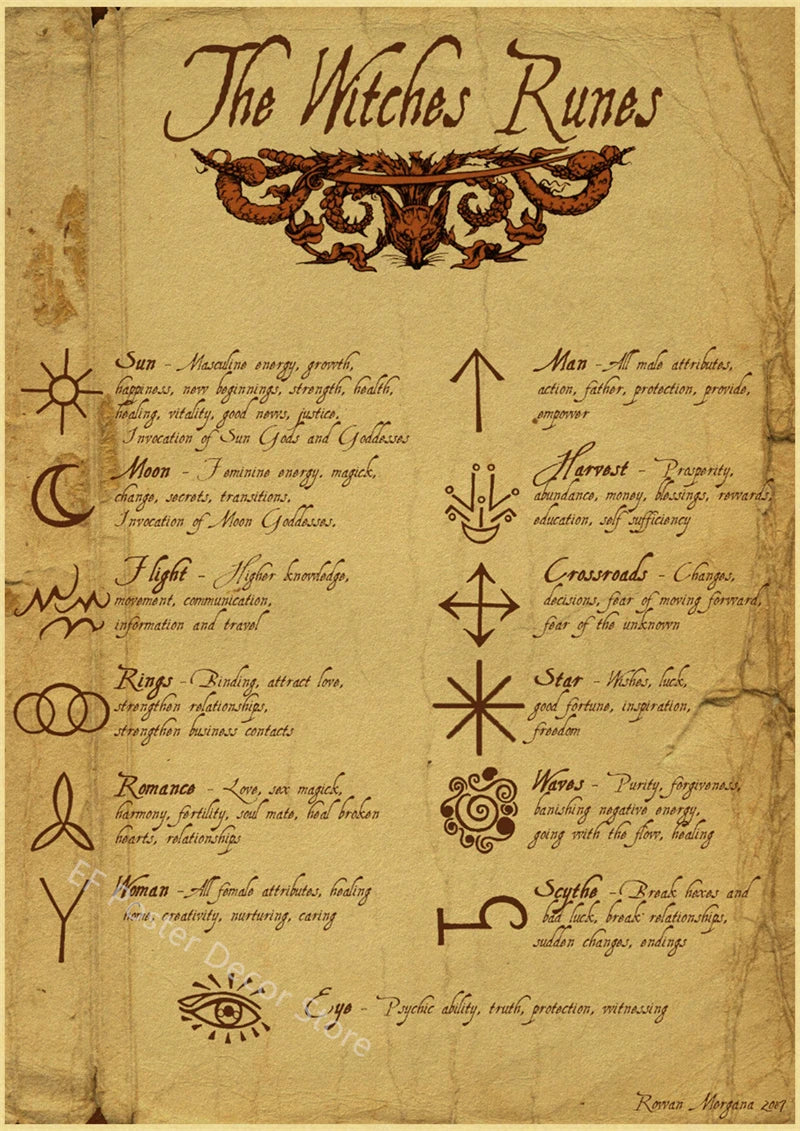 The Witches Runes
Sun - Masculine energy, growth,
happiness, new beginnings, strength, health,
healing, vitality, good news, justice.
Invocation of Sun Gods and Goddesses
Moon - Feminine energy. magick,
change, secrets, transitions,
Invocation of Moon Goddesses.
Flight - Higher knowledge,
movement, communication,
information and travel
Rings - Binding, attract love,
strengthen relationships,
strengthen business contacts
Romance - Love, sex magick,
harmony, fertility, soul mate, heal broken
hearts, relationships
Woman - All female attributes, healing
home, creativity, nurturing, caring
Man - All male attributes,
action, father, protection, provide,
empower
Harvest - Prosperity,
abundance, money, blessings, rewards,
education, self sufficiency
Crossroads - Changes,
decisions, fear of moving forward,
fear of the unknown
Star - Wishes, luck,
good fortune, inspiration,
freedom
Waves - Purity, forgiveness,
banishing negative energy,
going with the flow, healing
Scythe - Break hexes and
bad luck, break relationships,
sudden changes, endings
Eye - Psychic ability, truth, protection, witnessing
EF Poster Decor Store
Rowan Morgana 2007